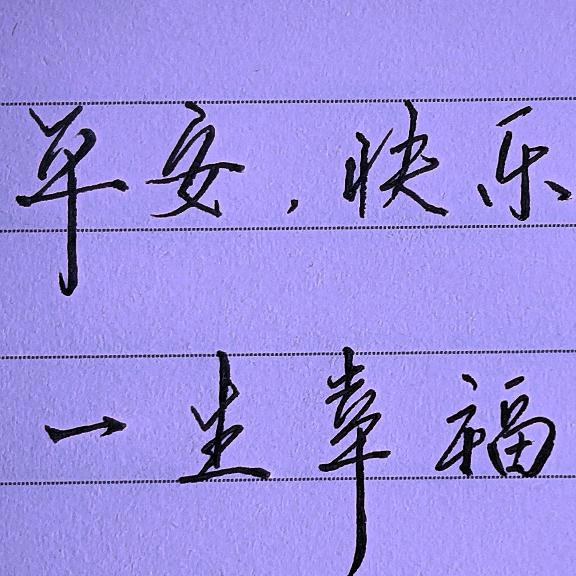 早安，快乐
一生幸福